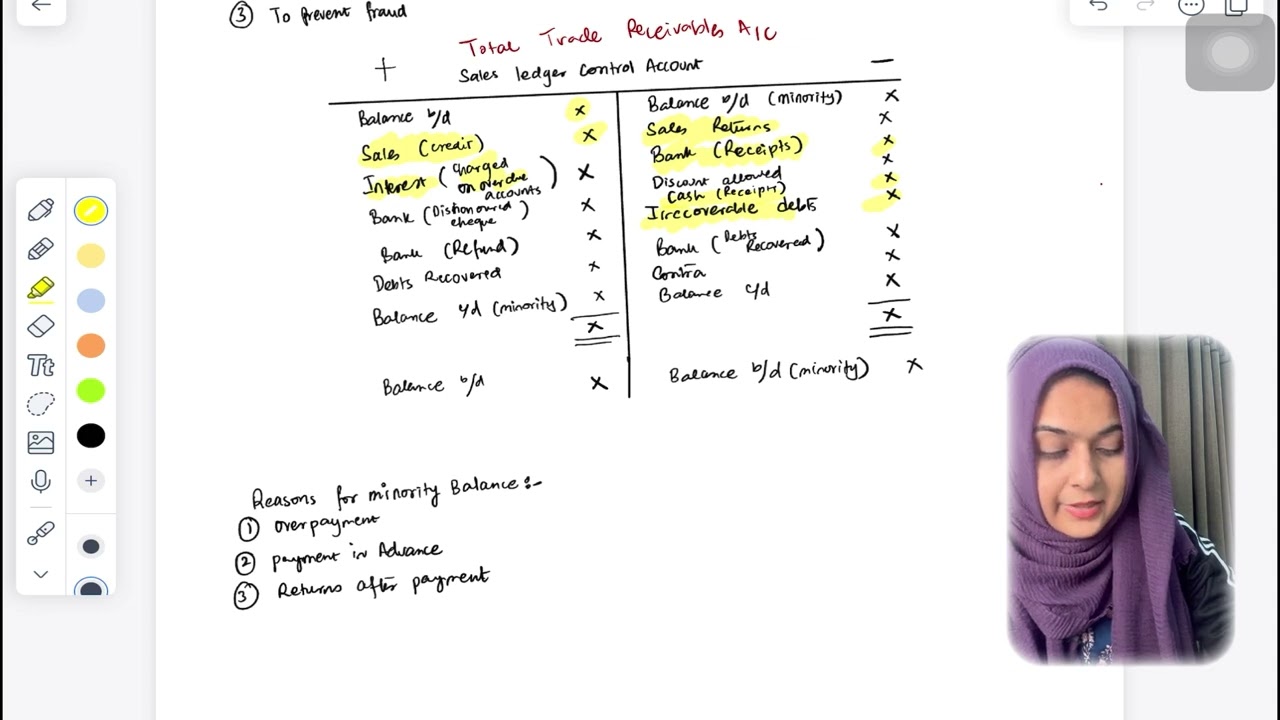 ③ To prevent fraud
Total Trade Receivables A/C
+ Sales ledger Control Account −
Balance b/d x
Sales (credit) x
Interest (charged on overdue accounts) x
Bank (Dishonoured cheque) x
Bank (Refund) x
Debts Recovered x
Balance c/d (minority) x
x
Balance b/d x
Balance b/d (minority) x
Sales Returns x
Bank (Receipts) x
Discount allowed x
Cash (Receipts) x
Irrecoverable debts x
Bank (Debts Recovered) x
Contra x
Balance c/d x
x
Balance b/d (minority) x
Reasons for minority Balance :-
① overpayment
② payment in Advance
③ Returns after payment
Tt